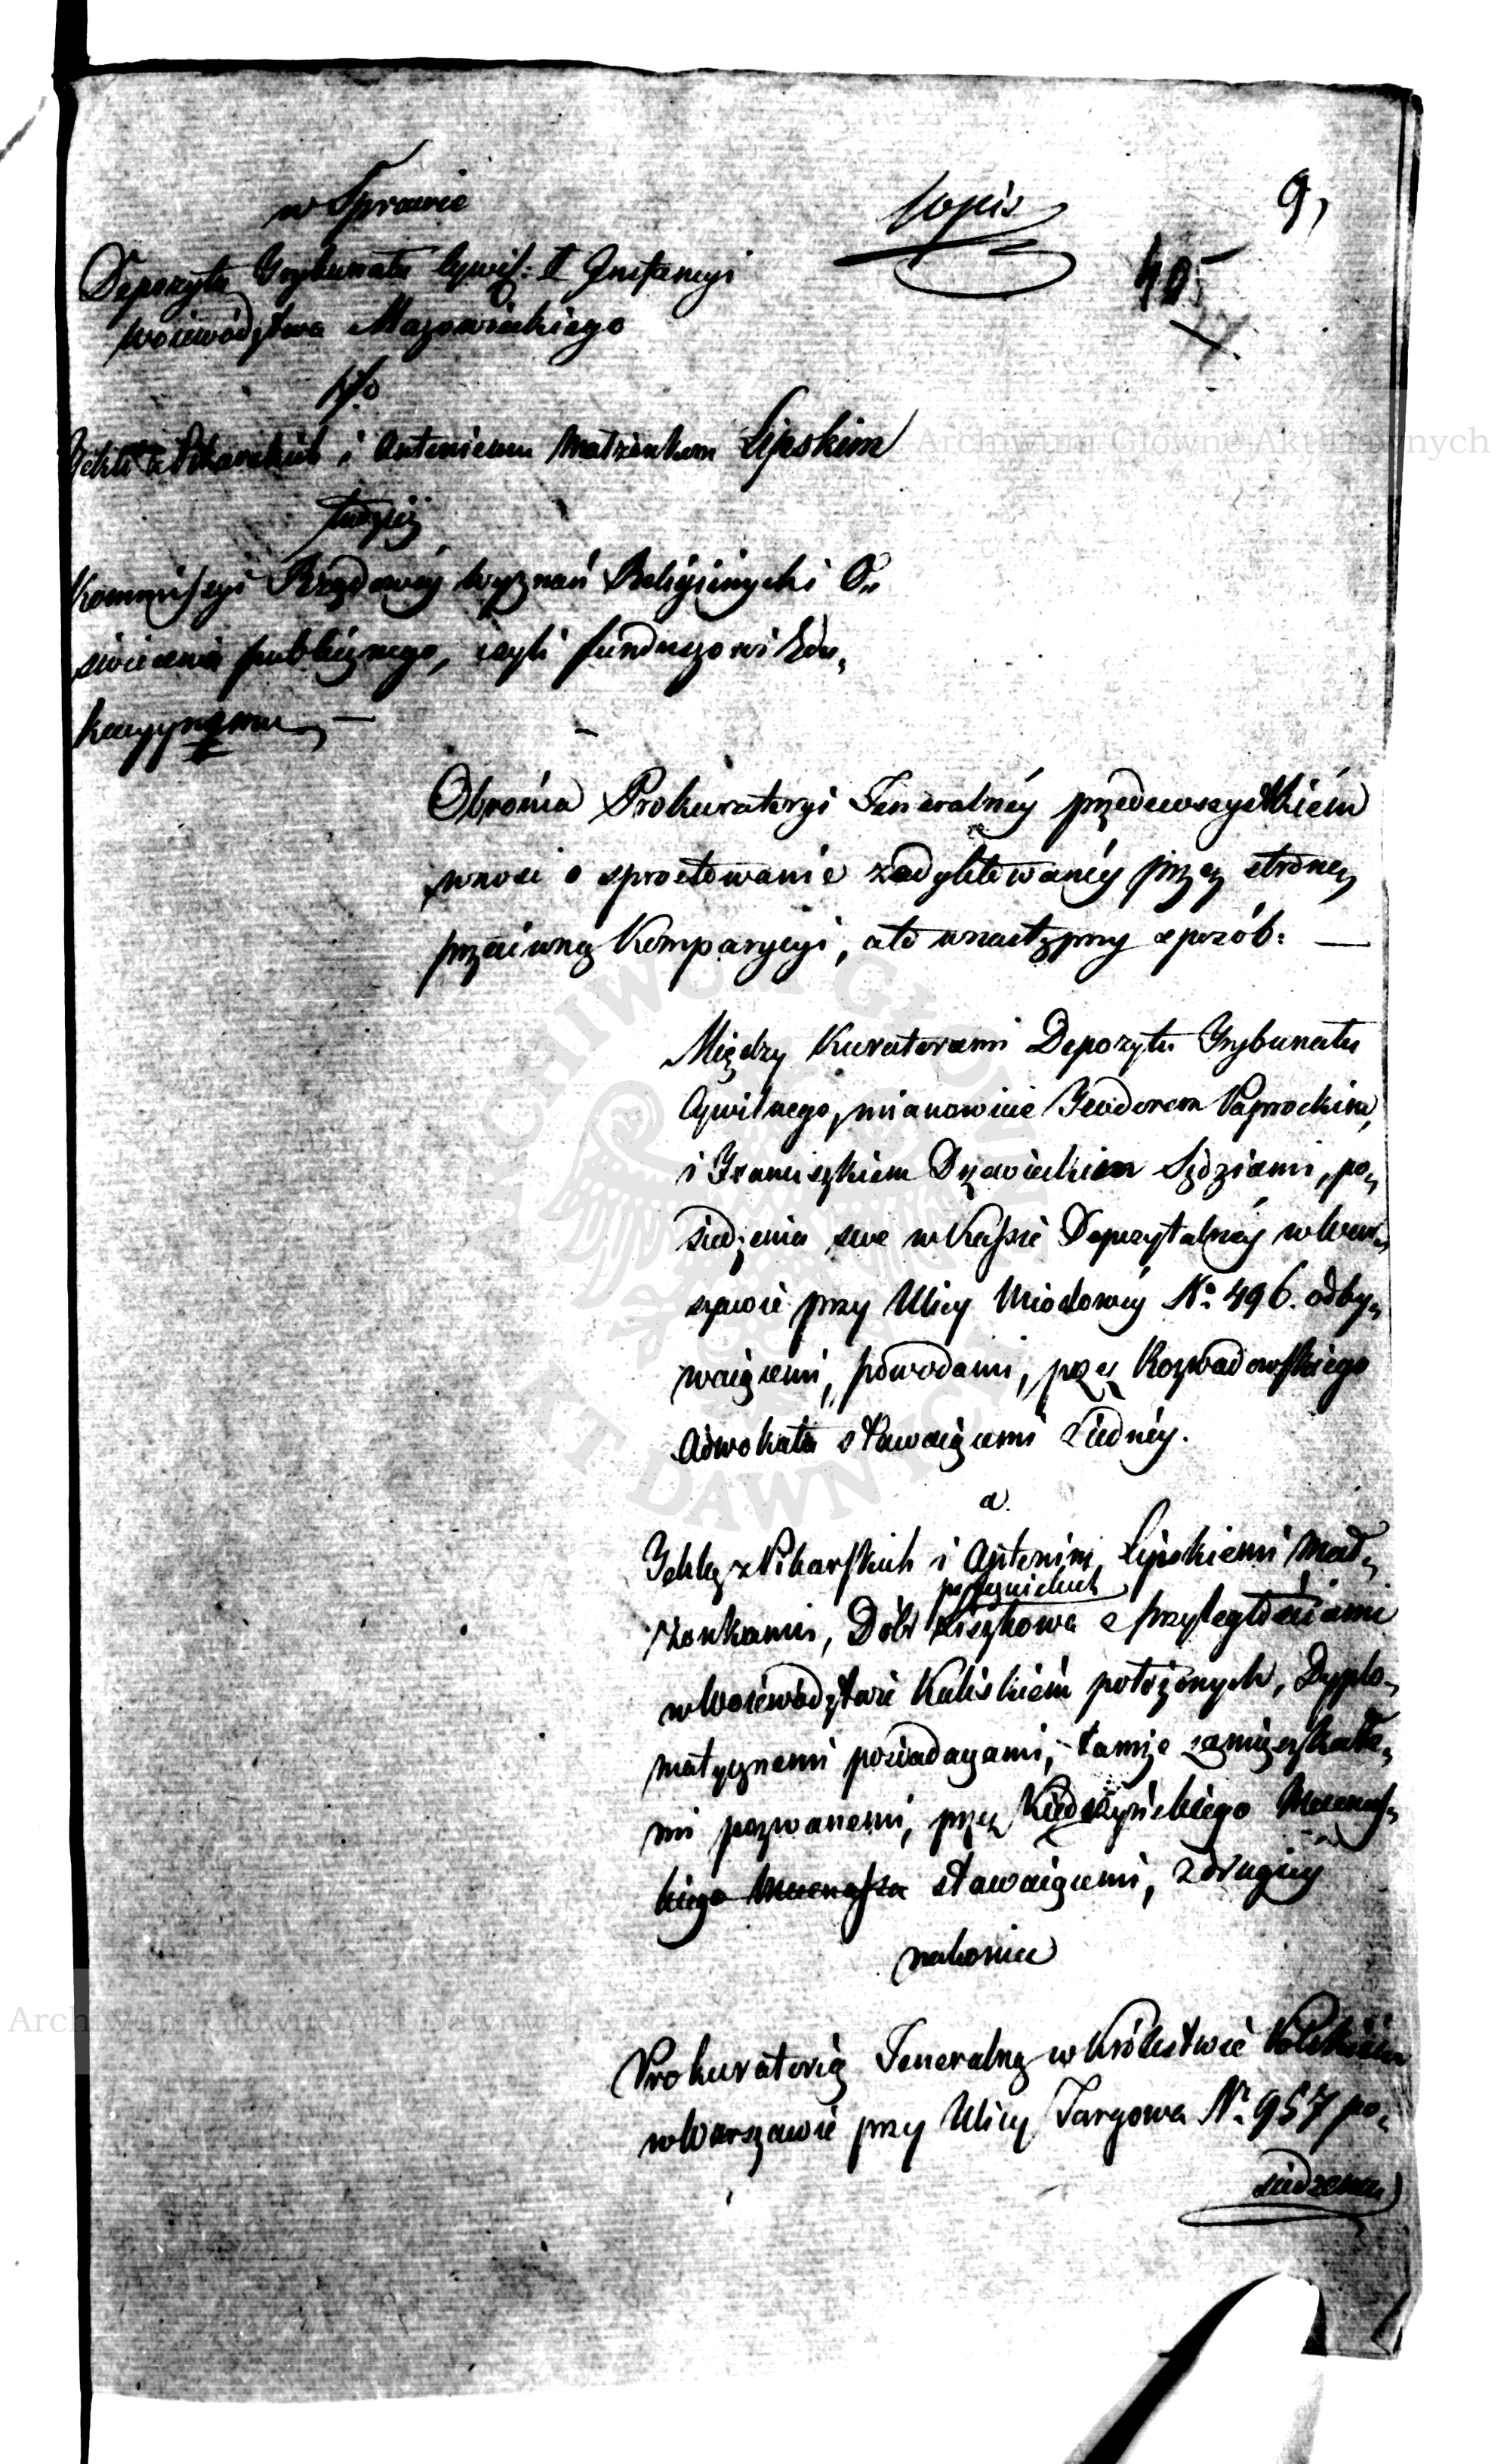 w Sprawie
kopis
9,
405
Depozytu Trybunatu Cywil: I Instancyi
Województwa Mazowieckiego
p/o
Tekli z Pikarskich i Antoniemu Małżonkom Lipskim
tudzież
Kommissyi Rządowéy Wyznań Religiinych i O„
świecenia publicznego, czyli funduszowi Edu„
kacyynemu —
Obrońca Prokuratoryi Jeneralnéy przedewszystkiém
wnosi o sprostowanie zadyktowanéy przez stronę
przeciwną Komparycyi, a to w nastęPny sposób: —
Między Kuratorami Depozytu Trybunatu
Cywilnego, mianowicie Teodorem Paprockim,
i Franciszkiem Sędziami, po„
siedzenia swe w Kassie Depozytalnéy w War„
szawie przy Ulicy Miodowéy No 496. odby„
waiącemi, powodami, przez Rozwadowskiego
Adwokata stawaiącemi z iednéy.
a.
Teklą z Pikarskich i Antonim Lipskiemi Mał„
żonkami, Dóbr Liszkowa z przyległościami
w Województwie Kaliskiém położonych, Dyplo„
matycznemi posiadaczami, tamże zamieszkałe„
mi pozwanemi, przez Mecenas„
kiego Mecenasa stawaiącemi, z drugiéy
nakoniec
Prokuratorią Jeneralną w Królestwie Polskiém
w Warszawie przy Ulicy Targowa No 957 po„
siedzenia
Archiwum Główne Akt Dawnych
Archiwum Główne Akt Dawnych
ARCHIWUM GŁÓWNE AKT DAWNYCH